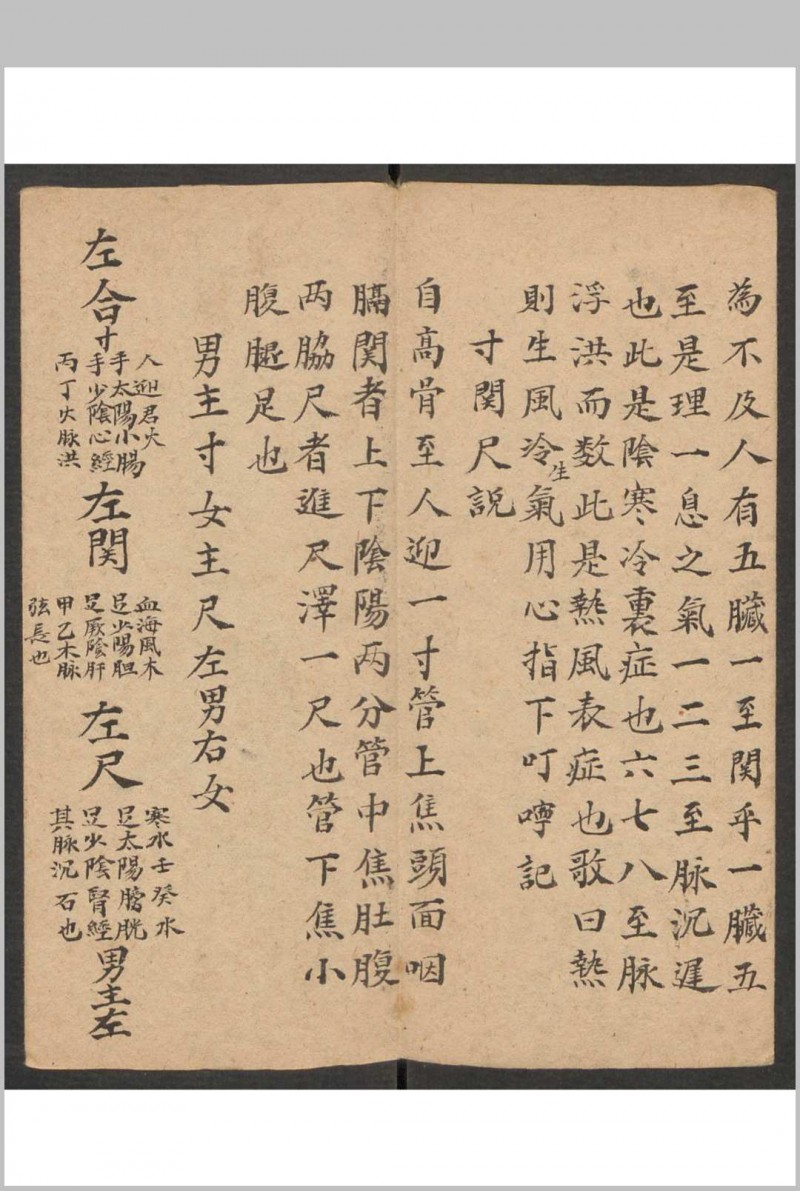 為不及人有五臟一至関乎一臟五
至是理一息之氣一二三至脉沉遲
也此是陰寒冷裏症也六七八至脉
浮洪而数此是熱風表症也歌曰熱
則生風冷生氣用心指下叮嚀記
寸関尺説
自高骨至人迎一寸管上焦頭面咽
膈関者上下陰陽两分管中焦肚腹
两脇尺者進尺澤一尺也管下焦小
腹腿足也
男主寸女主尺左男右女
左合寸
人迎君火
手太陽小腸
手少陰心經
丙丁火脉洪
左関
血海風木
足少陽胆
足厥陰肝
甲乙木脉
弦長也
左尺
寒水壬癸水
足太陽膀胱
足少陰腎經
其脉沉石也
男主左